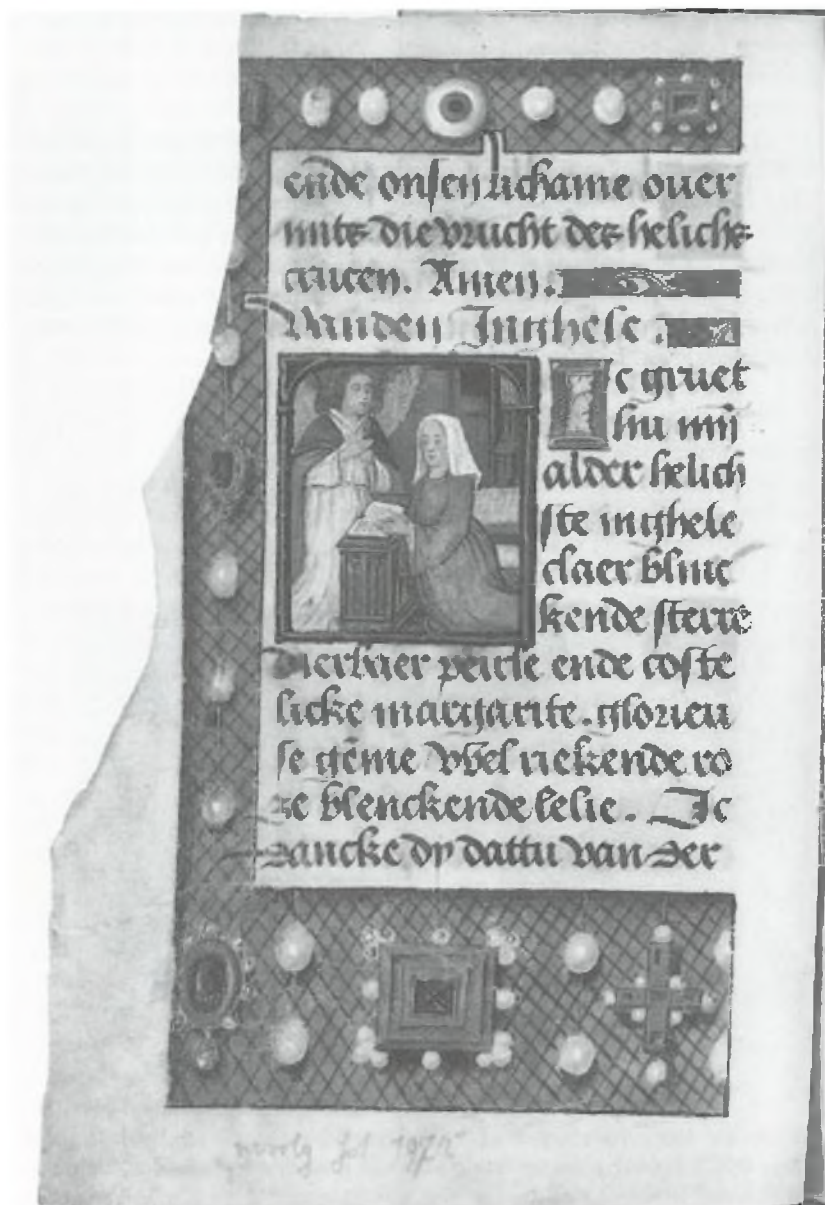 ende onsen lichame ouer
mits die vrucht des helichs
crucen. Amen.
Vanden Inghele.
Ic gruet
hu mij
alder helich
ste inghele
claer blinc
kende sterre
dierbaer peirle ende coste
licke margarite. glorieu
se gēme wel riekende ro
se blenckende lelie. Ic
dancke dy dattu van der